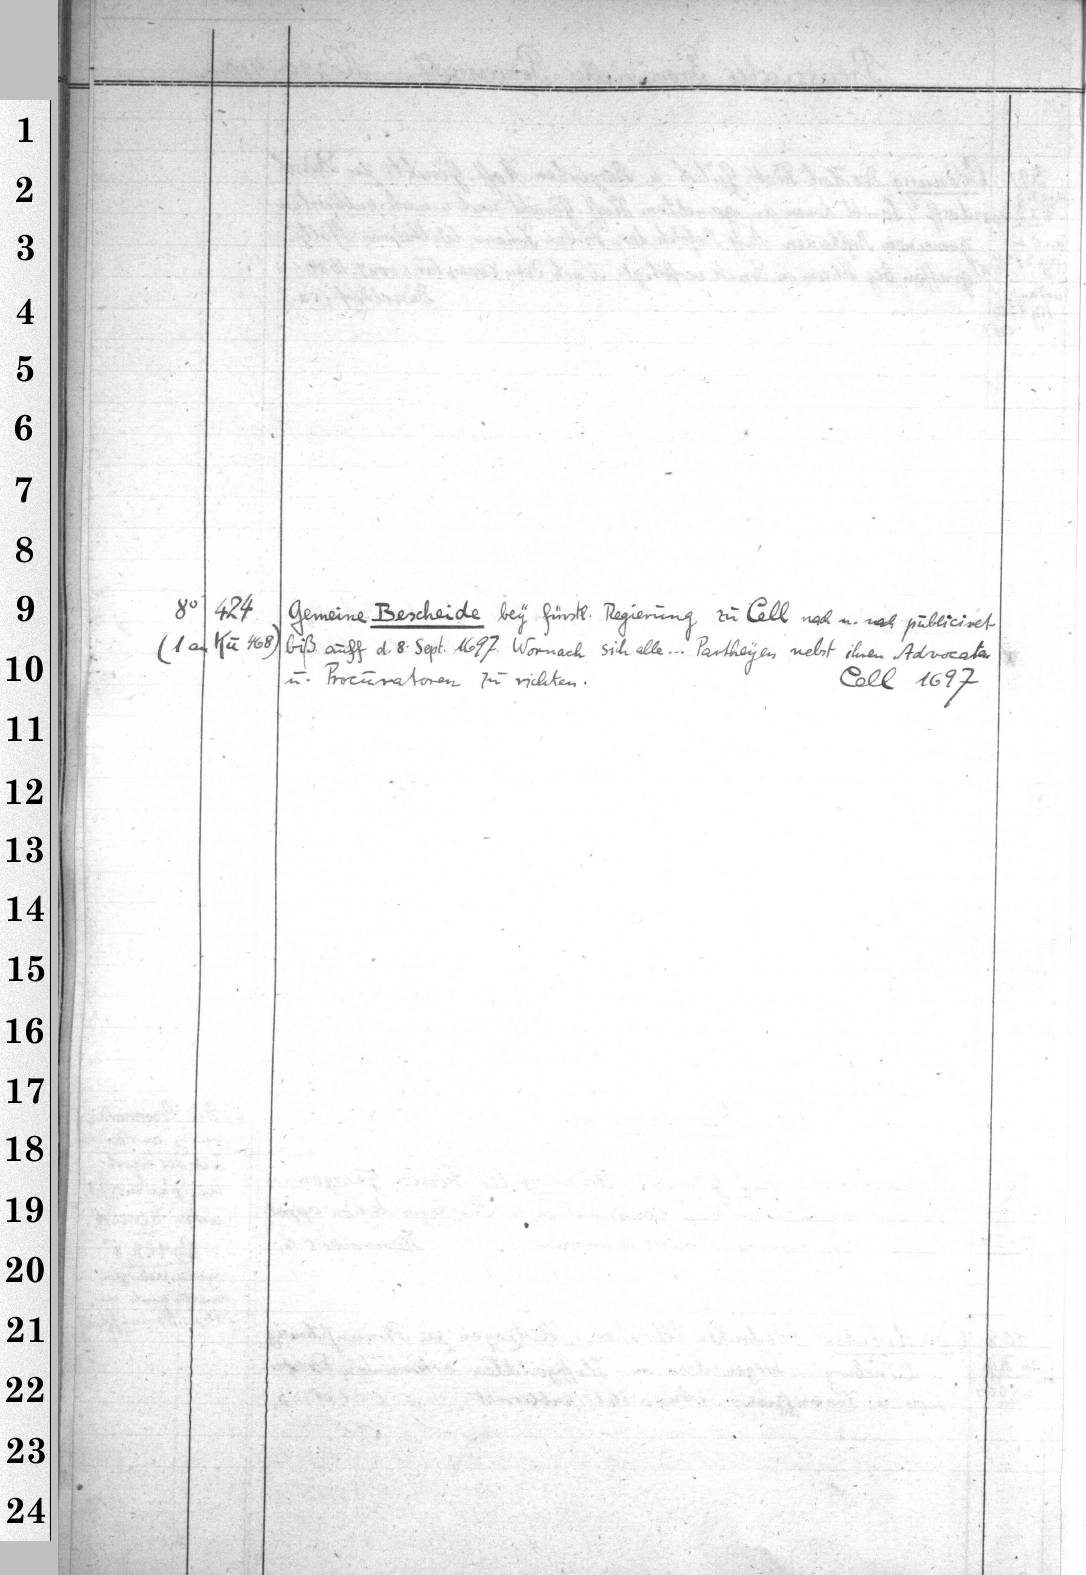 1
2
3
4
5
6
7
8
9
10
11
12
13
14
15
16
17
18
19
20
21
22
23
24
8° 424 Gemeine Bescheide beÿ fürstl. Regierung zu Cell nach u. nach publiciret
(1 an Kü 468) biß auff d. 8. Sept. 1697. Wornach sich alle... Partheyen nebst ihren Advocaten
u. Procuratoren zu richten. Cell 1697